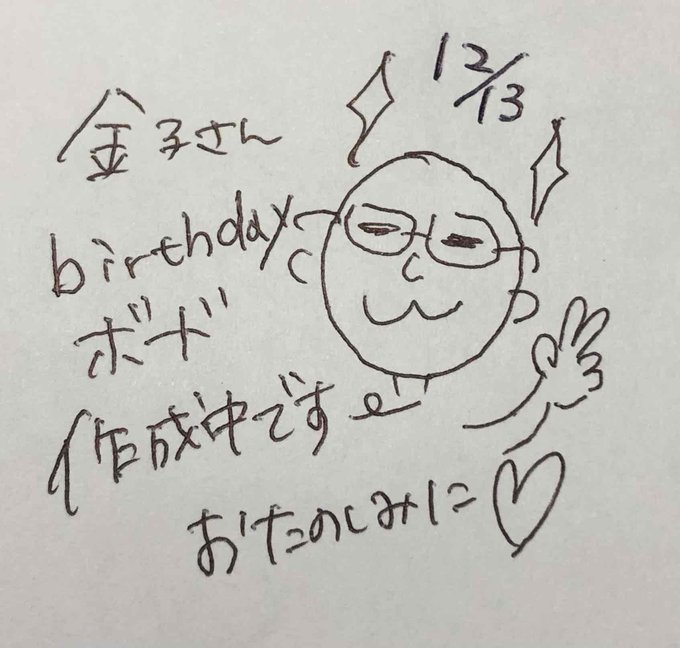 12/13
金子さん
birthday
ボード
作成中です
おたのしみに♡